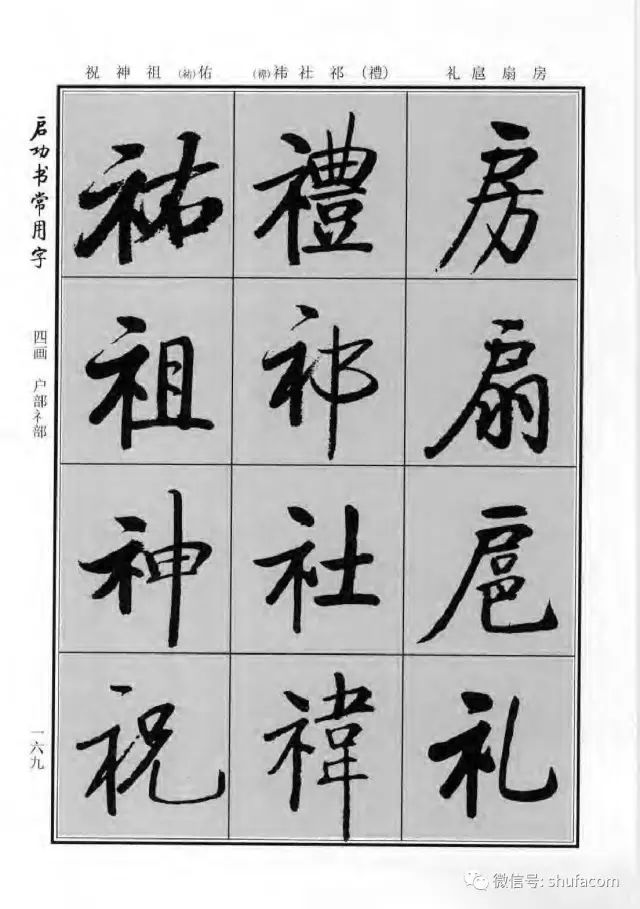 房扇扈礼(禮)祁社祎(禕)佑(祐)祖神祝
房扇扈礼
禮祁社禕
祐祖神祝
启功书常用字
四画 户部礻部
一六九
微信号: shufacom